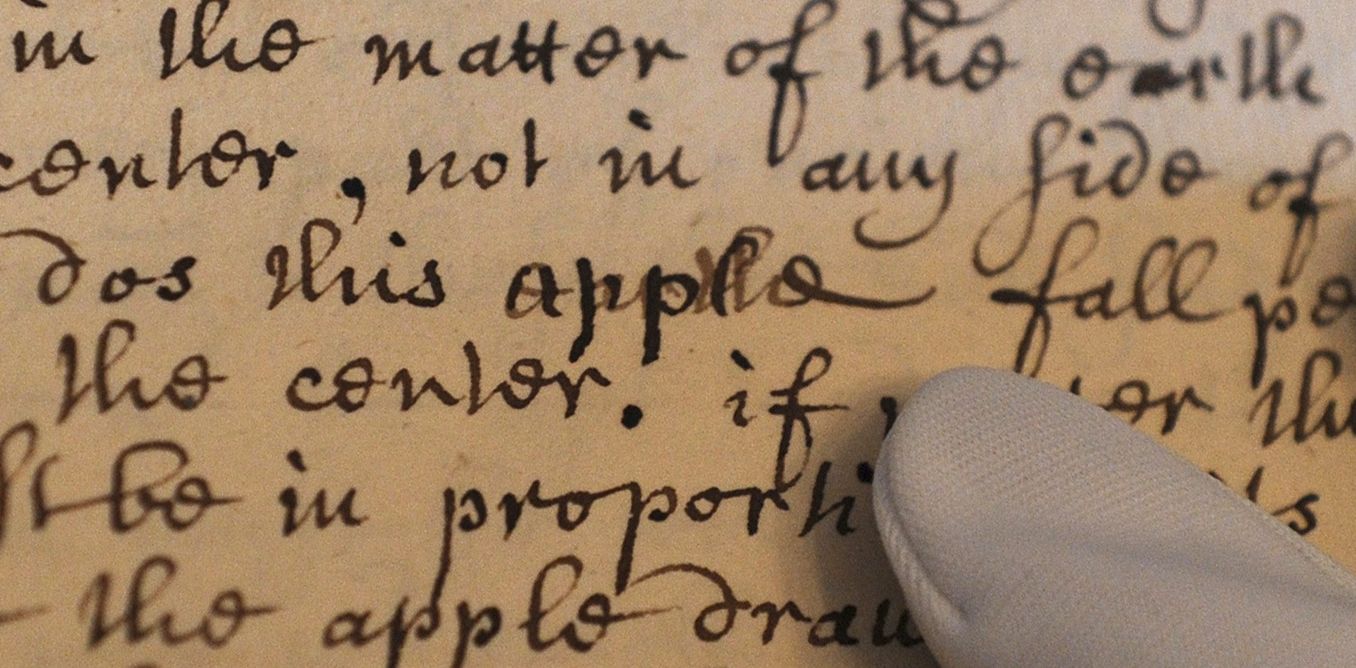 in the matter of the earth
center, not in any side of
dos this apple fall pe
the center. if
be in proporti
the apple draw